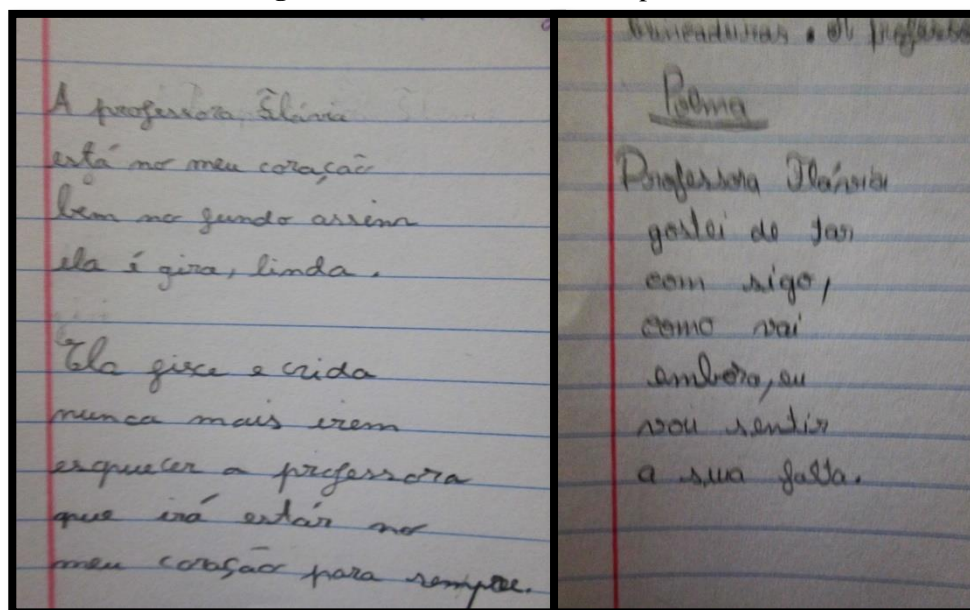 A professora Flávia
está no meu coração
bem no fundo assim
ela é gira, linda.
Ela fixe e crida
nunca mais irem
esquecer a professora
que irá estár no
meu coração para sempre.
Poema
Professora Flávia
gostei de tar
com sigo,
como vai
embora, eu
vou sentir
a sua falta.